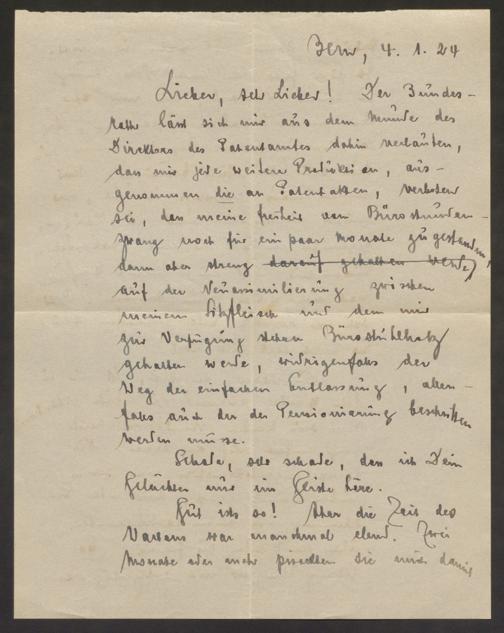 Bern, 4. 1. 24
Lieber, sehr Lieber! Der Bundes-
rath lässt sich mir aus dem Munde des
Direktors des Patentamtes dahin verlauten,
dass mir jede weitere Produktion, aus-
genommen die an Patentakten, verboten
sei, dass meine Freiheit vom Bürostunden-
zwang noch für ein paar Monate zugestanden,
dann aber streng darauf gehalten werde,
auf der Neuassimilierung zwischen
meinem Sitzfleisch und dem mir
zur Verfügung stehen Bürostuhlholz
gehalten werde, widrigenfalls der
Weg der einfachen Entlassung, allen-
falls auch der der Pensionierung beschritten
werden müsse.
Schade, sehr schade, dass ich Dein
Gelächter nur im Geiste höre.
Gut ists so! Aber die Zeit des
Wartens war manchmal elend. Zwei
Monate oder mehr sie mich damit